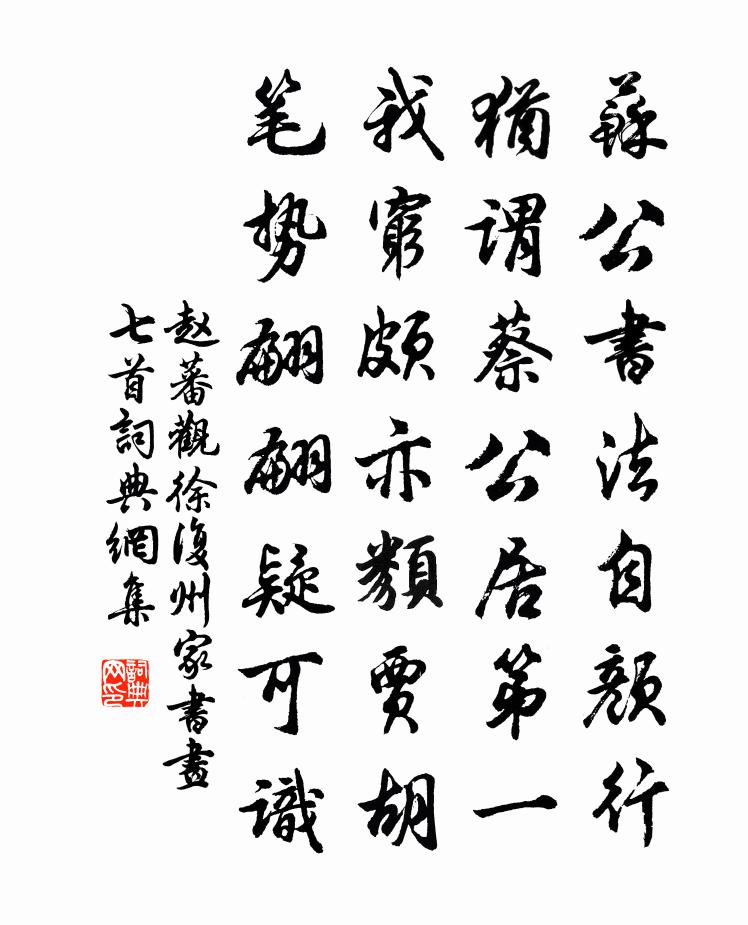 蘇公書法自顔行
猶謂蔡公居第一
我窮頗亦類賈胡
笔势翩翩疑可識
赵蕃觀徐復州家書畫
七首詞典網集
詞典网印